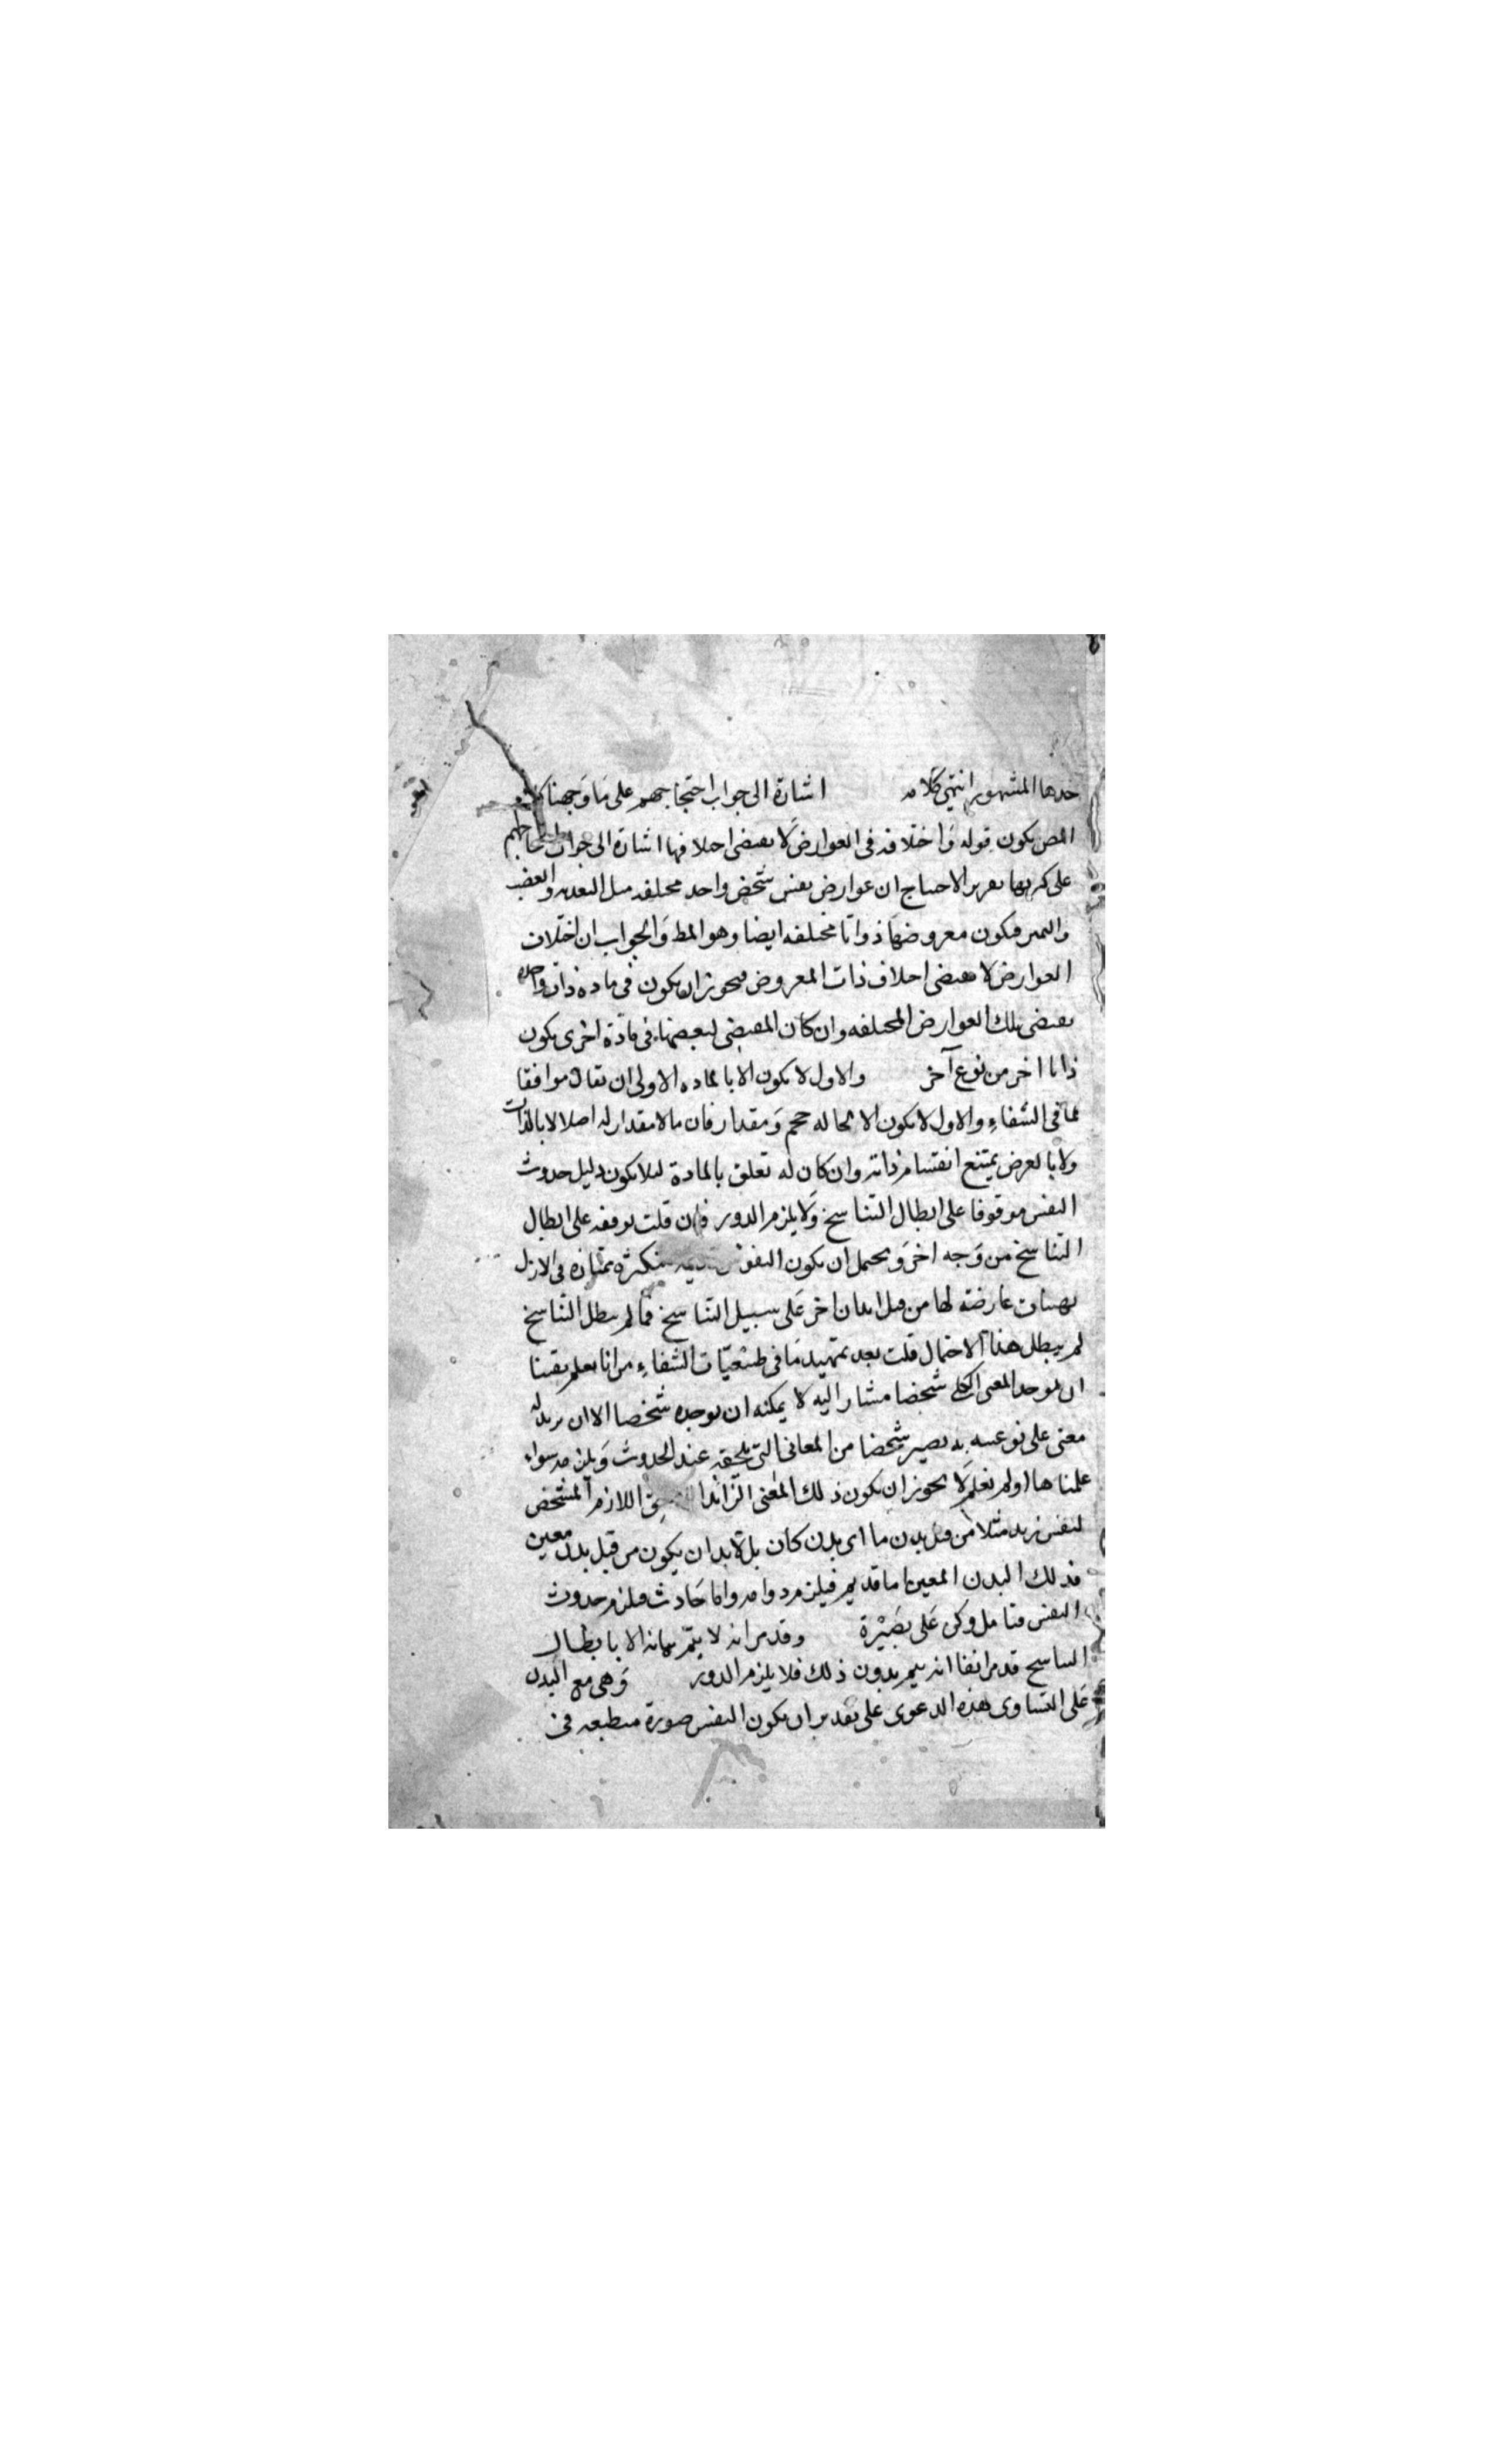 حدها المشهور انتهى كلامه اشارة الى جواب احتجاجهم على ما وجهنا
المص يكون قوله واختلافه فى العوارض لا يقتضى اختلافها اشارة الى جواب
على كبريها تقرير الاحتجاج ان عوارض نفس شخص واحد مختلفه مثل والغضب
فيكون معروضها ذواتا مختلفه ايضا وهو المط والجواب ان اختلاف
العوارض لا يقتضى اختلاف ذات المعروض فيجوز ان يكون فى مادة ذات واحده
يقتضى تلك العوارض المختلفه وان كان المقتضى لبعضها فى مادة اخرى يكون
ذاتا اخر من نوع آخر والاول لا يكون الا بالماده الاولى ان يقال موافقا
لما فى الشفاء والاول لا يكون الا لما له حجم ومقدار فان ما لا مقدار له اصلا لا بالذات
ولا بالعرض يمتنع انقسام ذاته وان كان له تعلق بالمادة لئلا يكون دليل حدوث
النفس موقوفا على ابطال التناسخ ولا يلزم الدور فان قلت توقفه على ابطال
التناسخ من وجه اخر ويحتمل ان يكون متكثرة متمايزه فى الازل
بهيئات عارضة لها من قبل ابدان اخر على سبيل التناسخ فما لم يبطل التناسخ
لم يبطل هذا الاحتمال قلت بعد تمهيد ما فى طبيعيات الشفاء من انا نعلم يقينا
ان موجد المعنى الكلى شخصا مشارا اليه لا يمكنه ان يوجده شخصا الا ان يزيد له
معنى على نوعيته به يصير شخصا من المعانى التى تلحقه عند الحدوث ويلزمه سواء
علمناها او لم نعلم لا يجوز ان يكون ذلك المعنى الزائد اللازم المشخص
لنفس زيد مثلا من قبل بدن ما اى بدن كان بل لابد ان يكون من قبل بدن معين
فذلك البدن المعين اما قديم فيلزم دوامه واما حادث فيلزم حدوث
النفس فتامل وكن على بصيرة وقد مر انه لا يتم بيانه الا بابطال
التناسخ قد مر انفا انه يتم بدون ذلك فلا يلزم الدور وهى مع البدن
على التساوى هذه الدعوى على تقدير ان يكون النفس صورة منطبعه فى